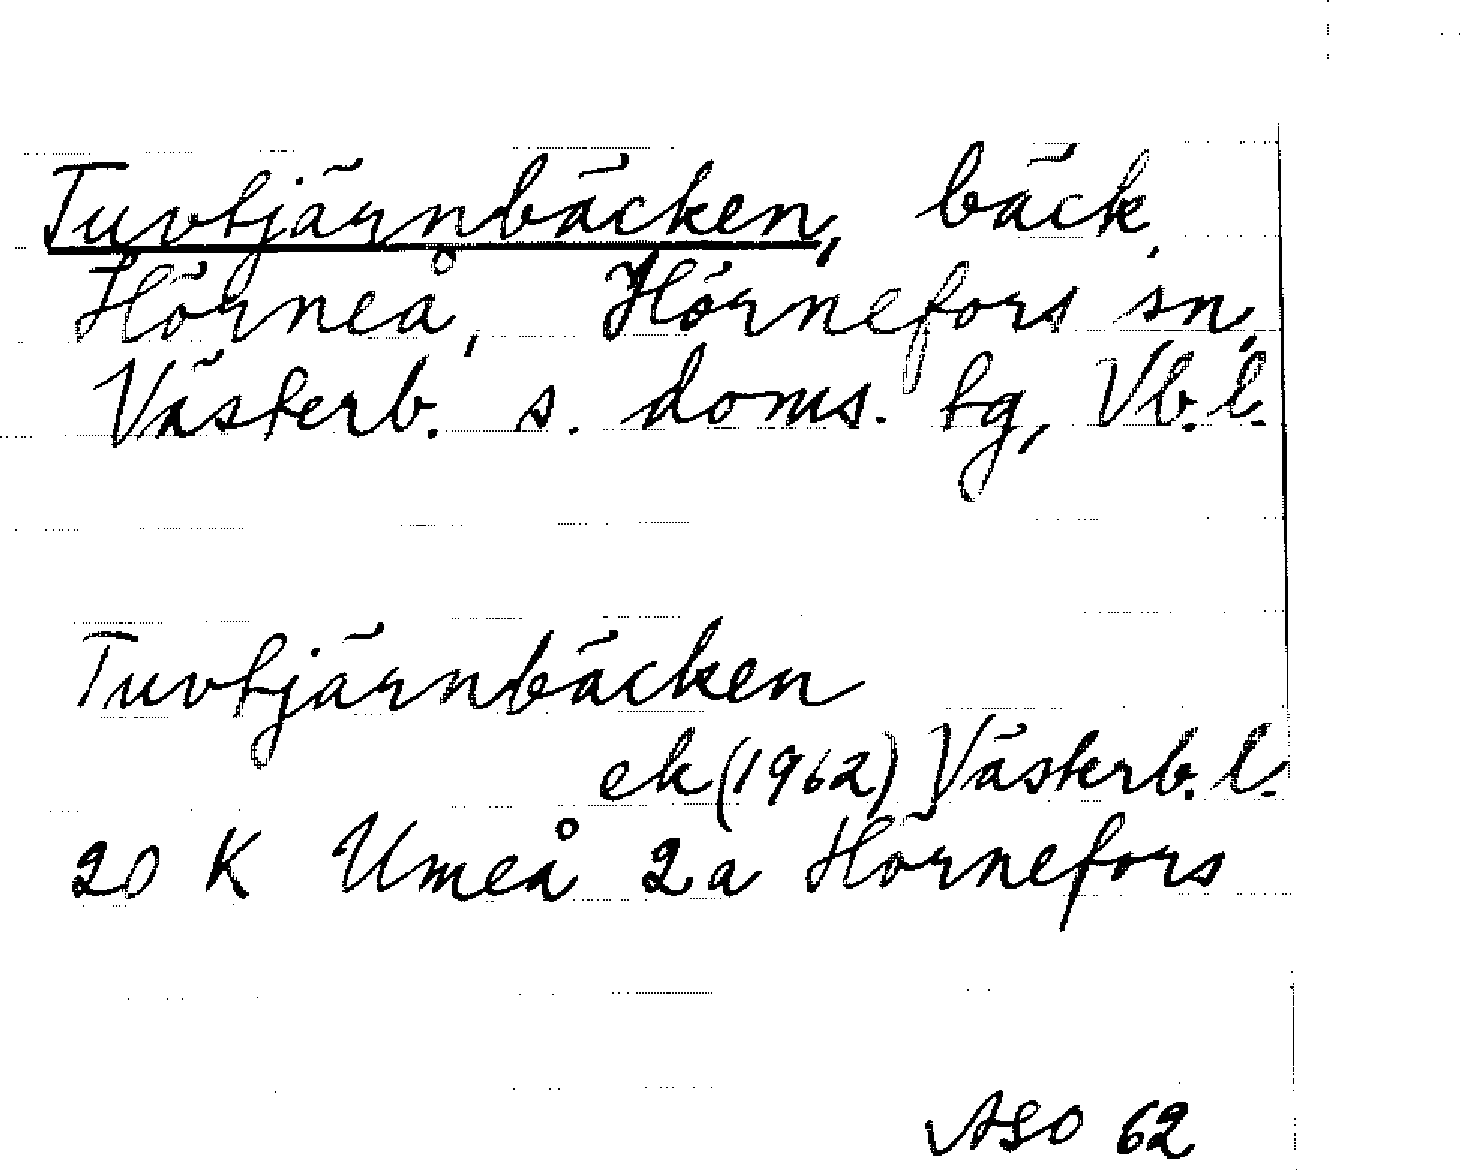 Tuvtjärnbäcken, bäck,
Hörneå, Hörnefors sn,
Västerb. s. doms. tg, Vb. l.
Tuvtjärnbäcken
ek (1962) Västerb. l.
20 K Umeå 2a Hörnefors
ASO 62